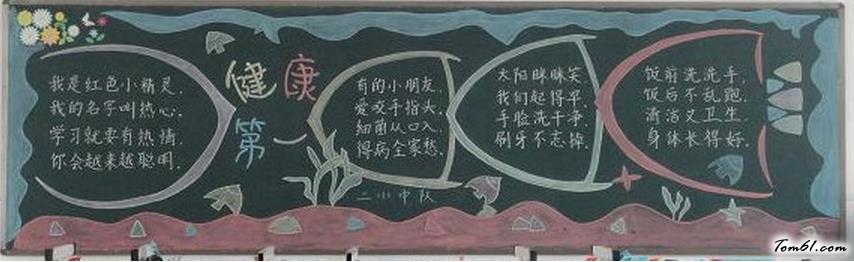 我是红色小精灵,
我的名字叫热心,
学习就要有热情,
你会越来越聪明.
健康
第一
有的小朋友,
爱咬手指头,
细菌从口入,
得病全家愁.
太阳眯眯笑,
我们起得早,
手脸洗干净,
刷牙不忘掉.
饭前洗洗手,
饭后不乱跑,
清洁又卫生,
身体长得好.
二小中队
Tom61.com